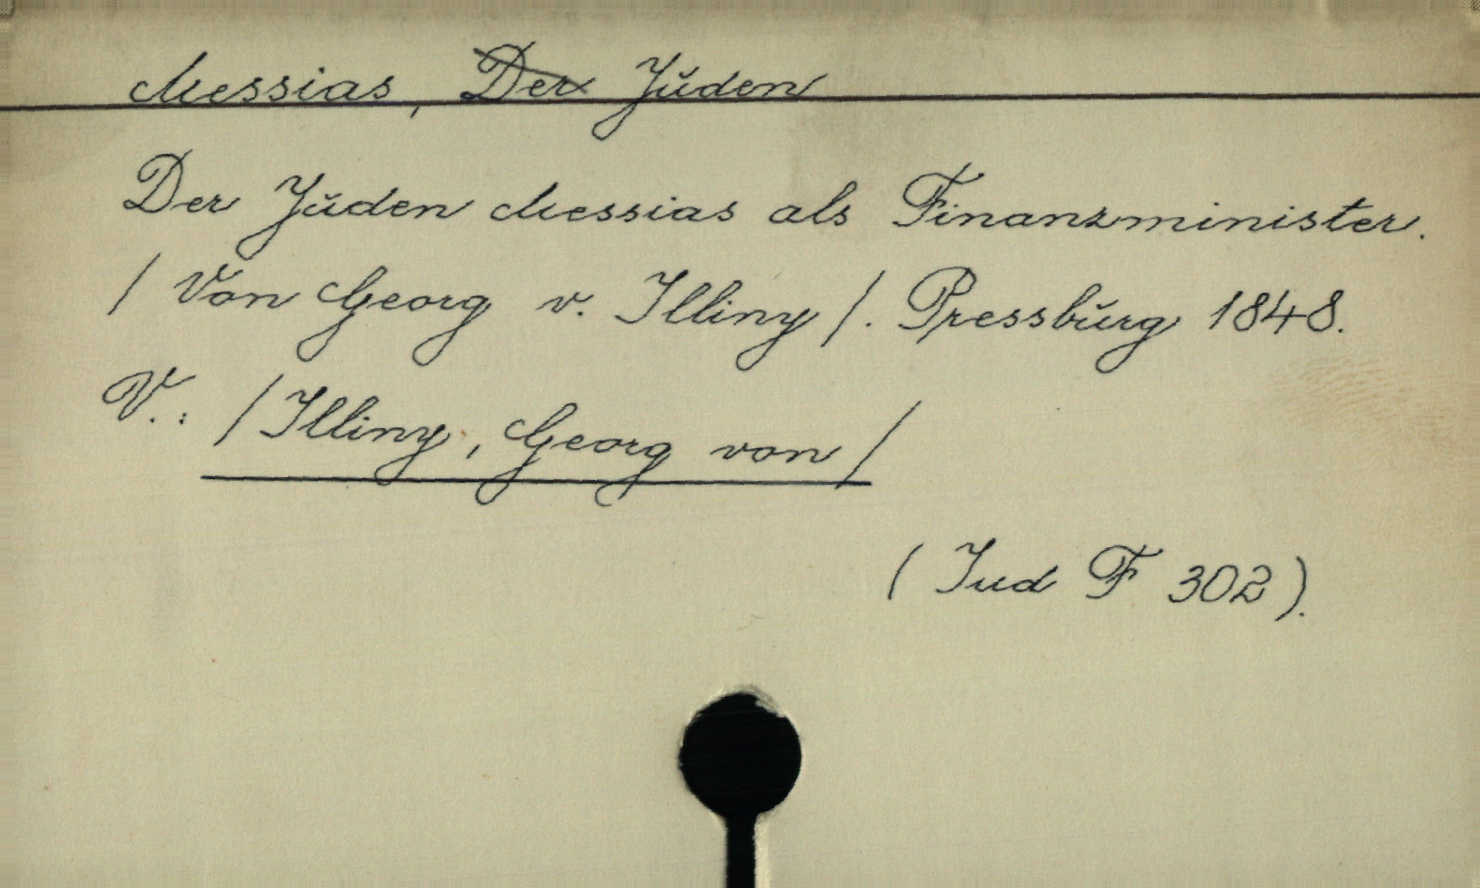 Messias, Der Juden
Der Juden Messias als Finanzminister.
/ Von Georg v. Illiny /. Pressburg 1848.
V.: / Illiny, Georg von /
( Jud F 302 ).